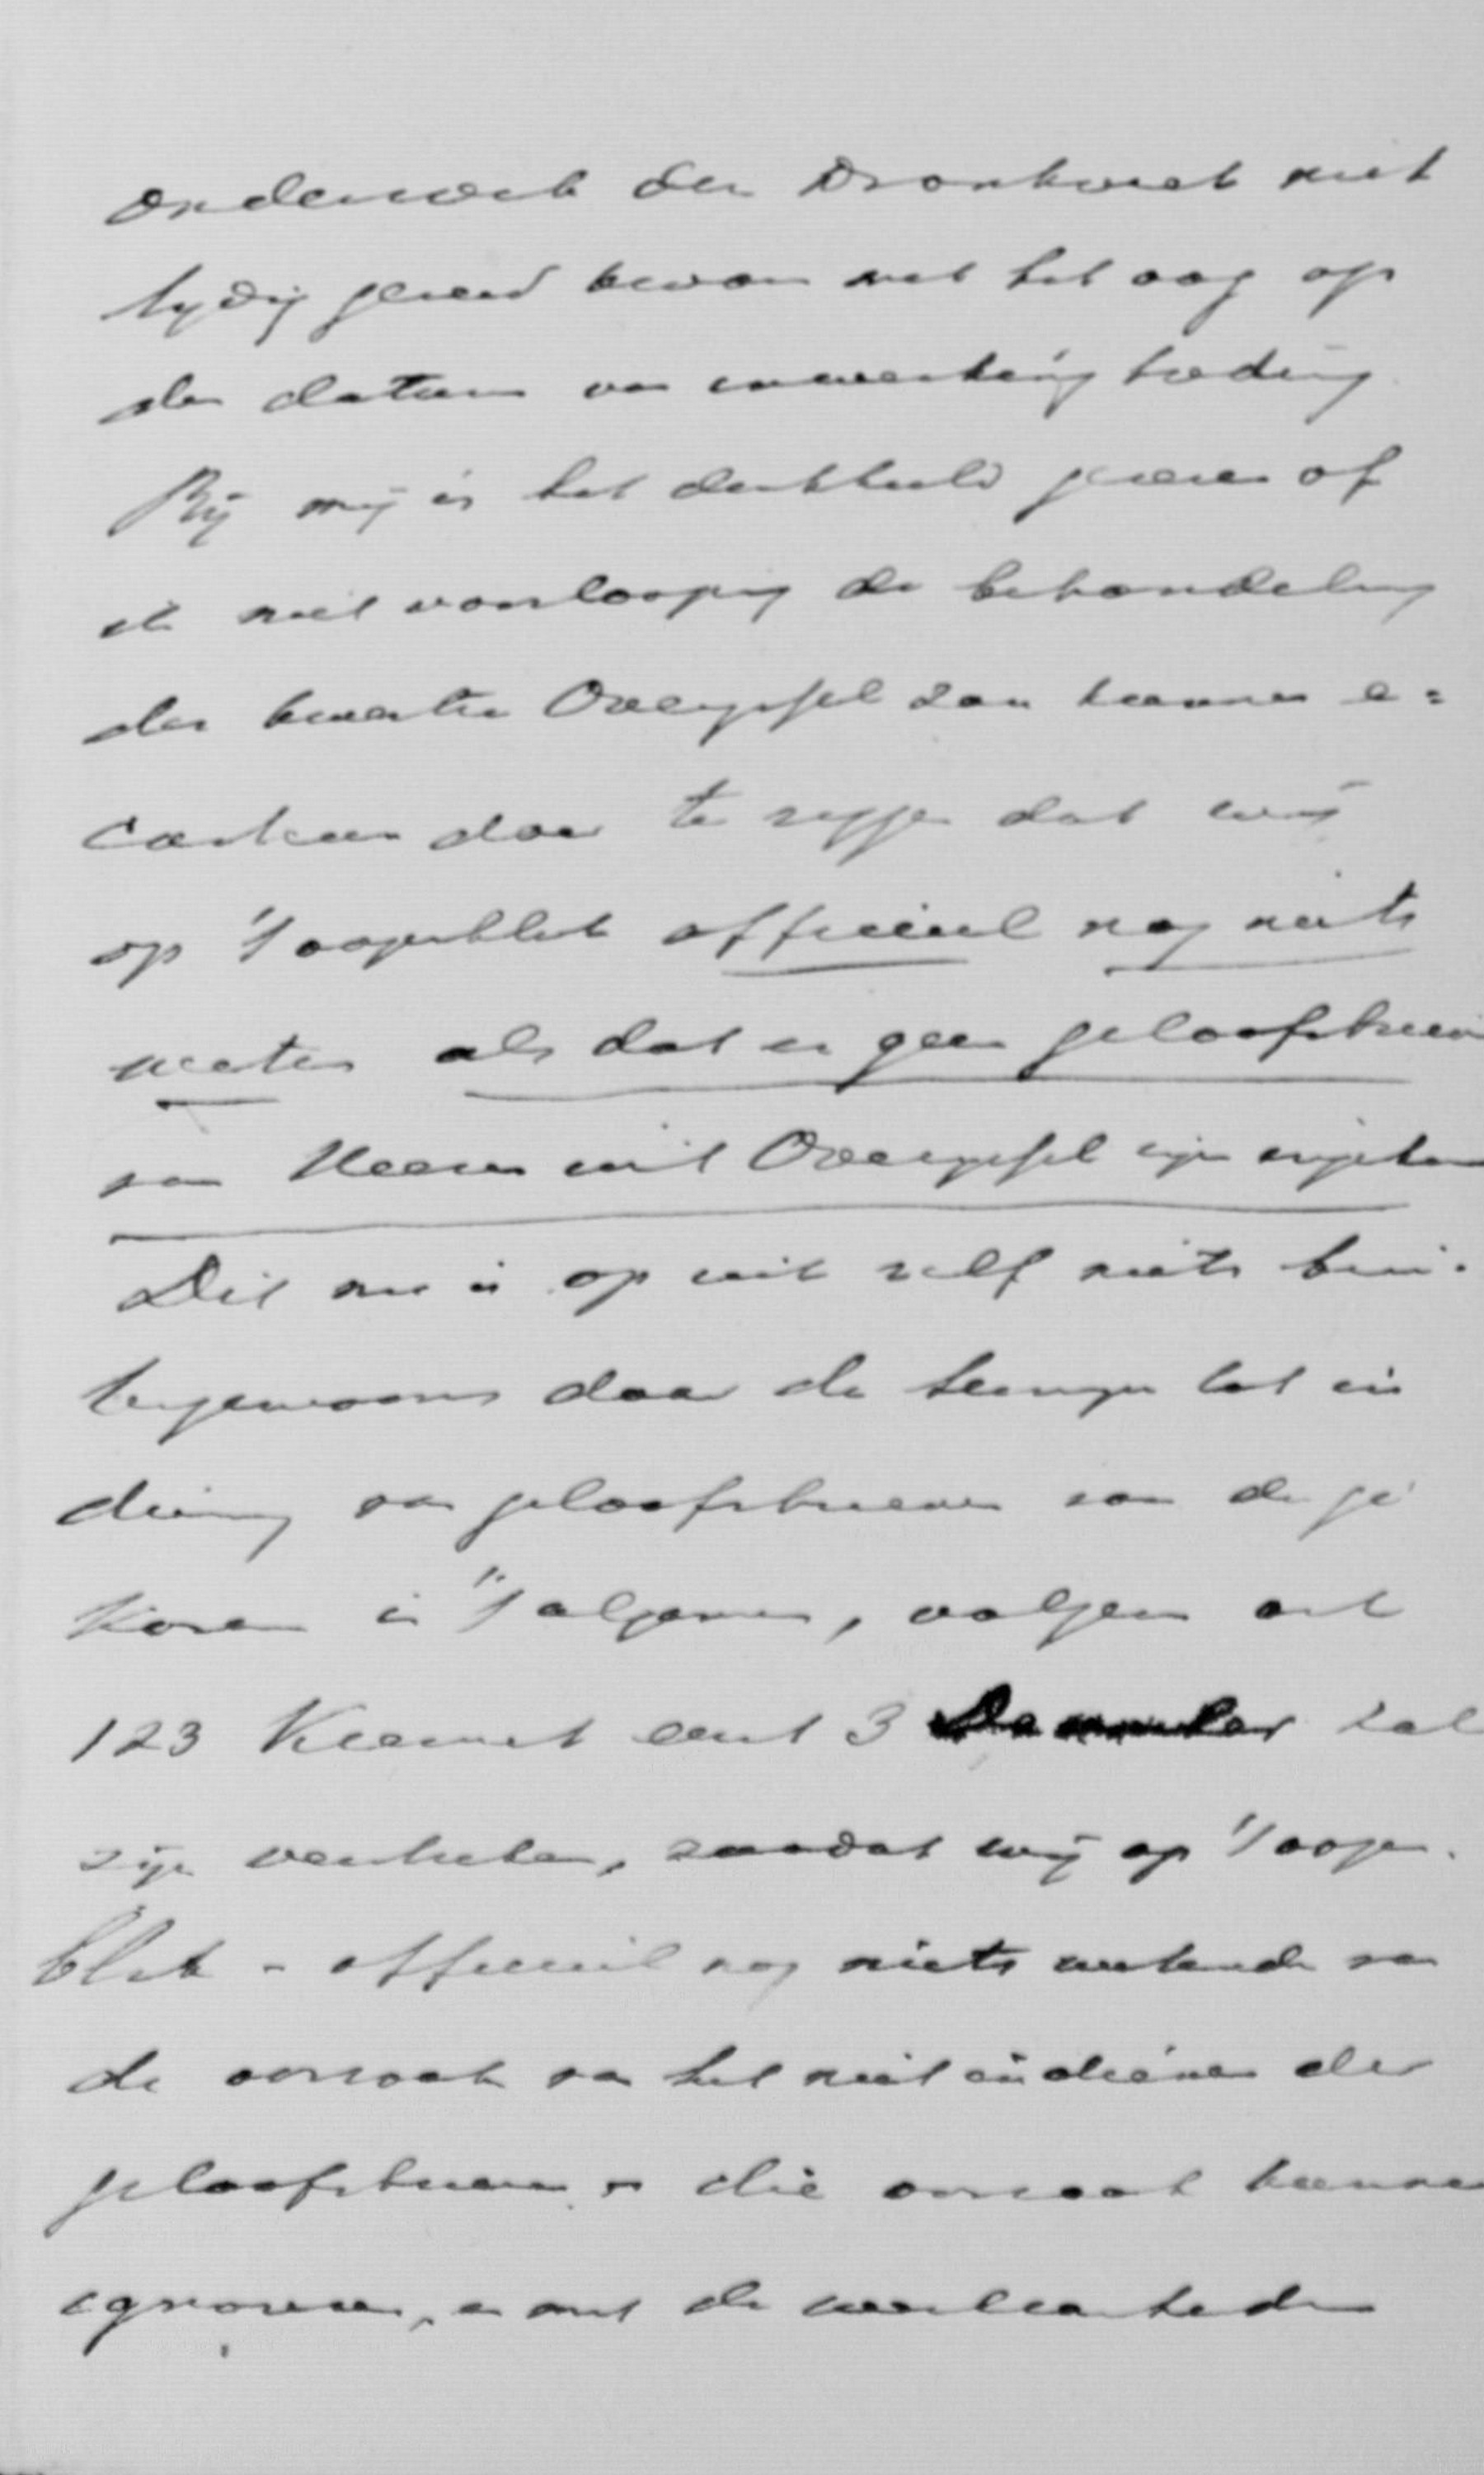 onderzoek der Drankwet niet
tijdig gereed kwam met het oog op
den datum van inwerking treding
Bij mij is het denkbeeld gerezen of
ik niet voorloopig de behandeling
der kwestie Overijssel zou kunnen e=
carteeren door te zeggen dat wij
op 't oogenblik officieel nog niets
weten als dat er geen geloofsbrieven
van Heeren uit Overijssel zijn ingekomen
Dit nu is op zich zelf niets bui-
tengewoons daar de termijn tot in
diening van geloofsbrieven van de ge
kozenen in 't algemeen, volgens art
123 Kieswet eerst 3 December zal
zijn verstreken, zoodat wij op 't oogen-
blik - officieel nog niets wetende van
de oorzaak van het niet indienen der
geloofsbrieven - die oorzaak kunnen
ignoreeren, en met de werkzaamheden